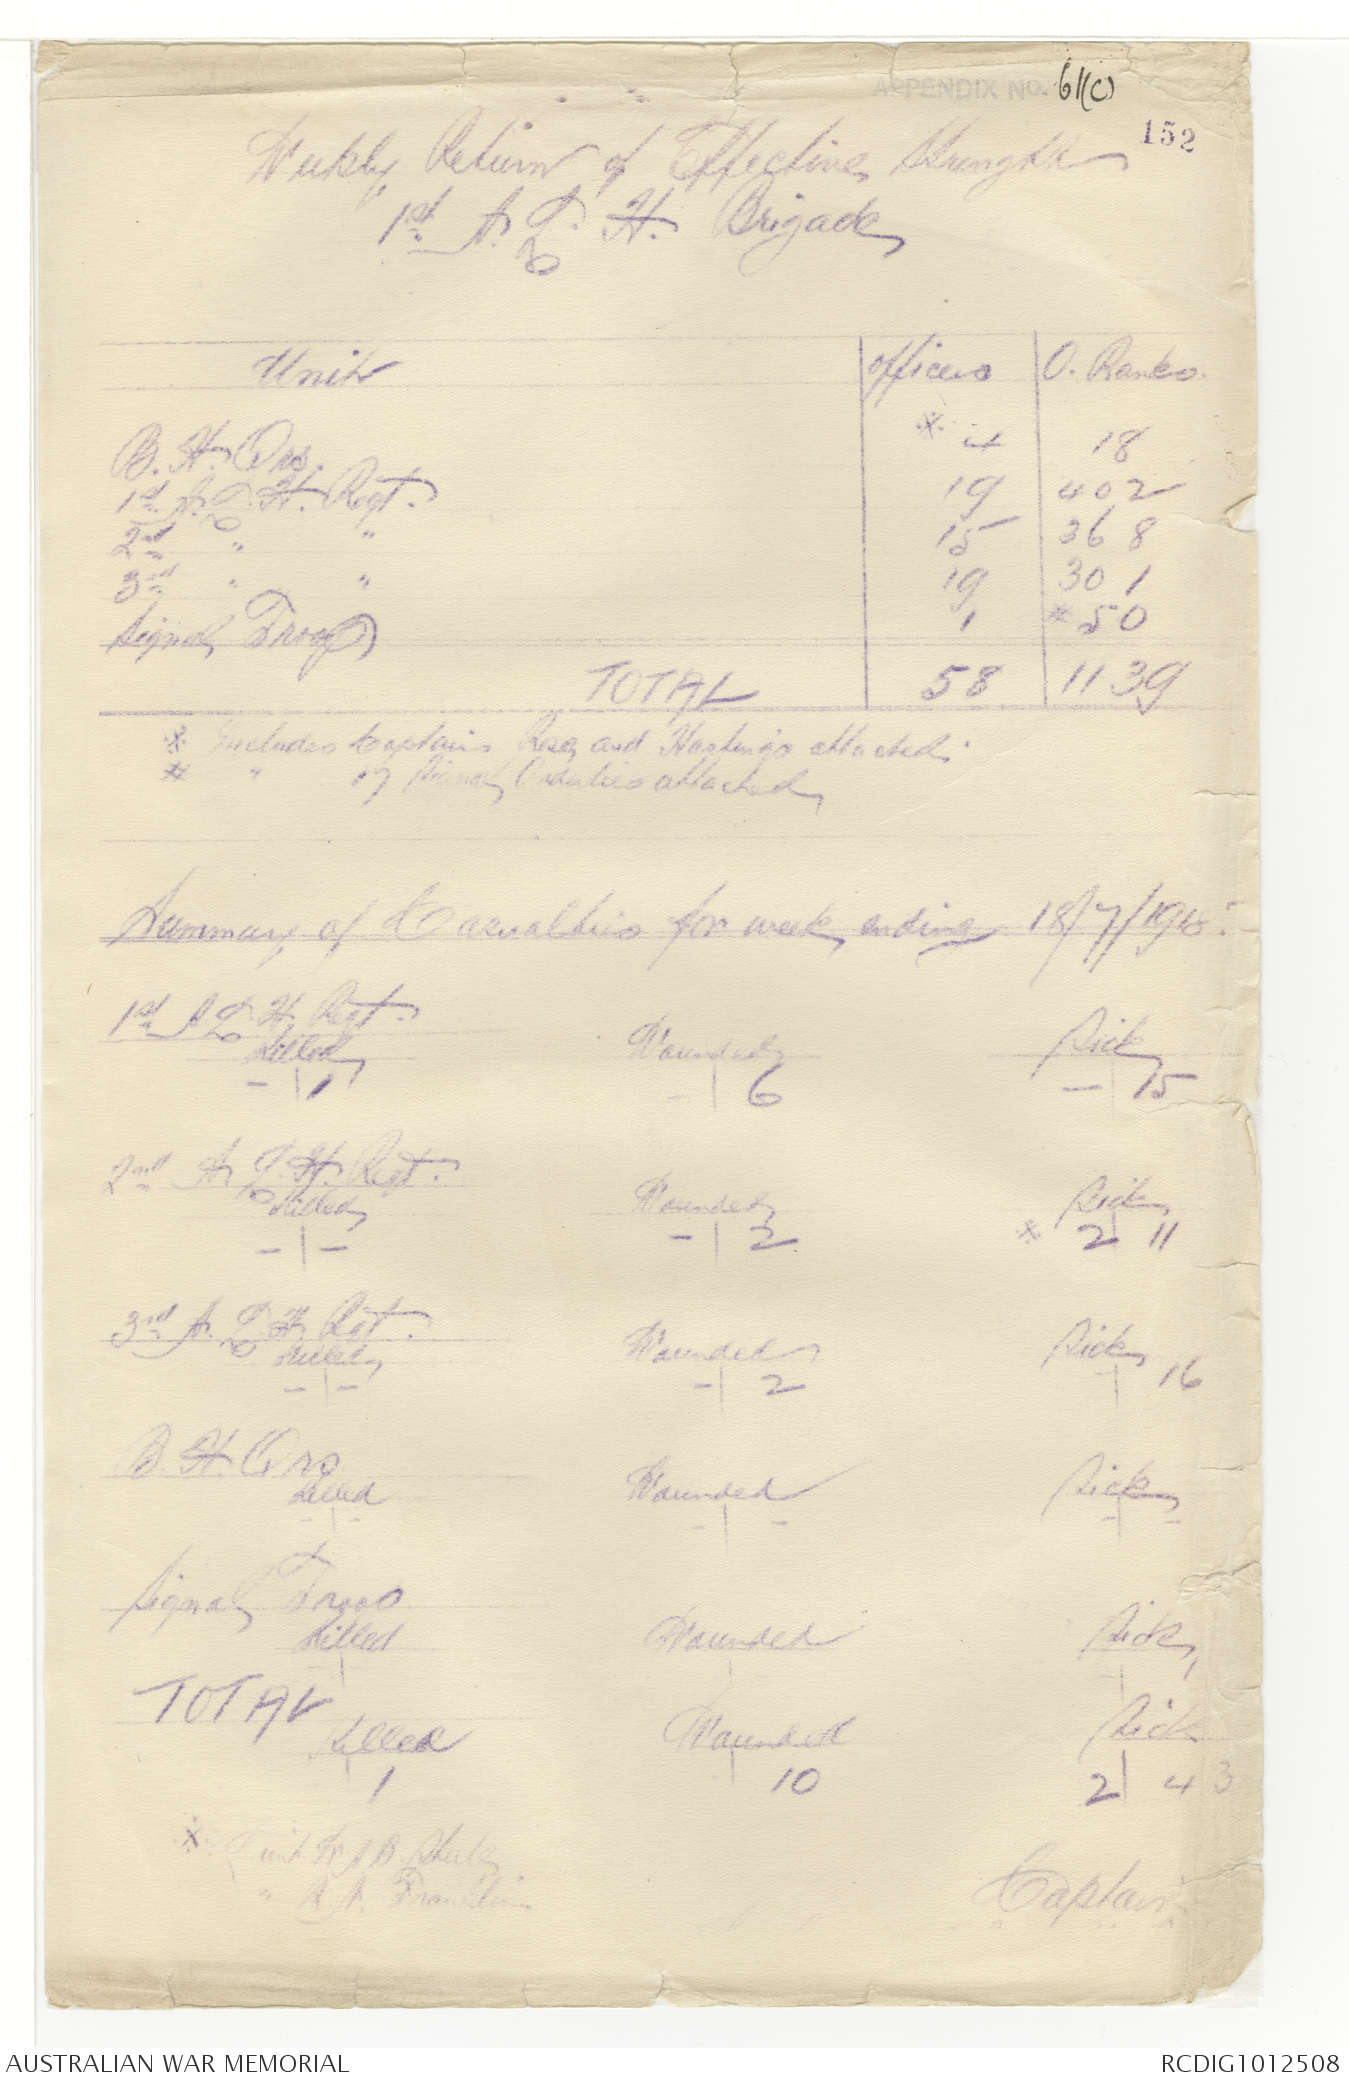 APPENDIX NO. 61(c)
152
Weekly Return of Effective Strength
1st A. L. H. Brigade
Unit Officers O. Ranks.
B. H. Qrs. * 4 18
1st A. L. H. Regt. 19 402
2nd " " 15 368
3rd " " 19 301
Signal Troop 1 # 50
TOTAL 58 1139
* Includes Captains Rose and Hastings attached.
# " 17 Signal Orderlies attached
Summary of Casualties for week ending 18/7/1915.
1st A L H. Regt.
Killed Wounded Sick
- | 1 - | 6 - | 15
2nd A. L. H. Regt.
Killed Wounded Sick
- | - - | 2 * 2 | 11
3rd A. L. H. Rgt.
Killed Wounded Sick
- | - - | 2 - | 16
B. H. Qrs
Killed Wounded Sick
- | - - | - - | -
Signal Troop
Killed Wounded Sick
- | 1
TOTAL
Killed Wounded Sick
| 1 | 10 2 | 43
* Lieut
"
Captain